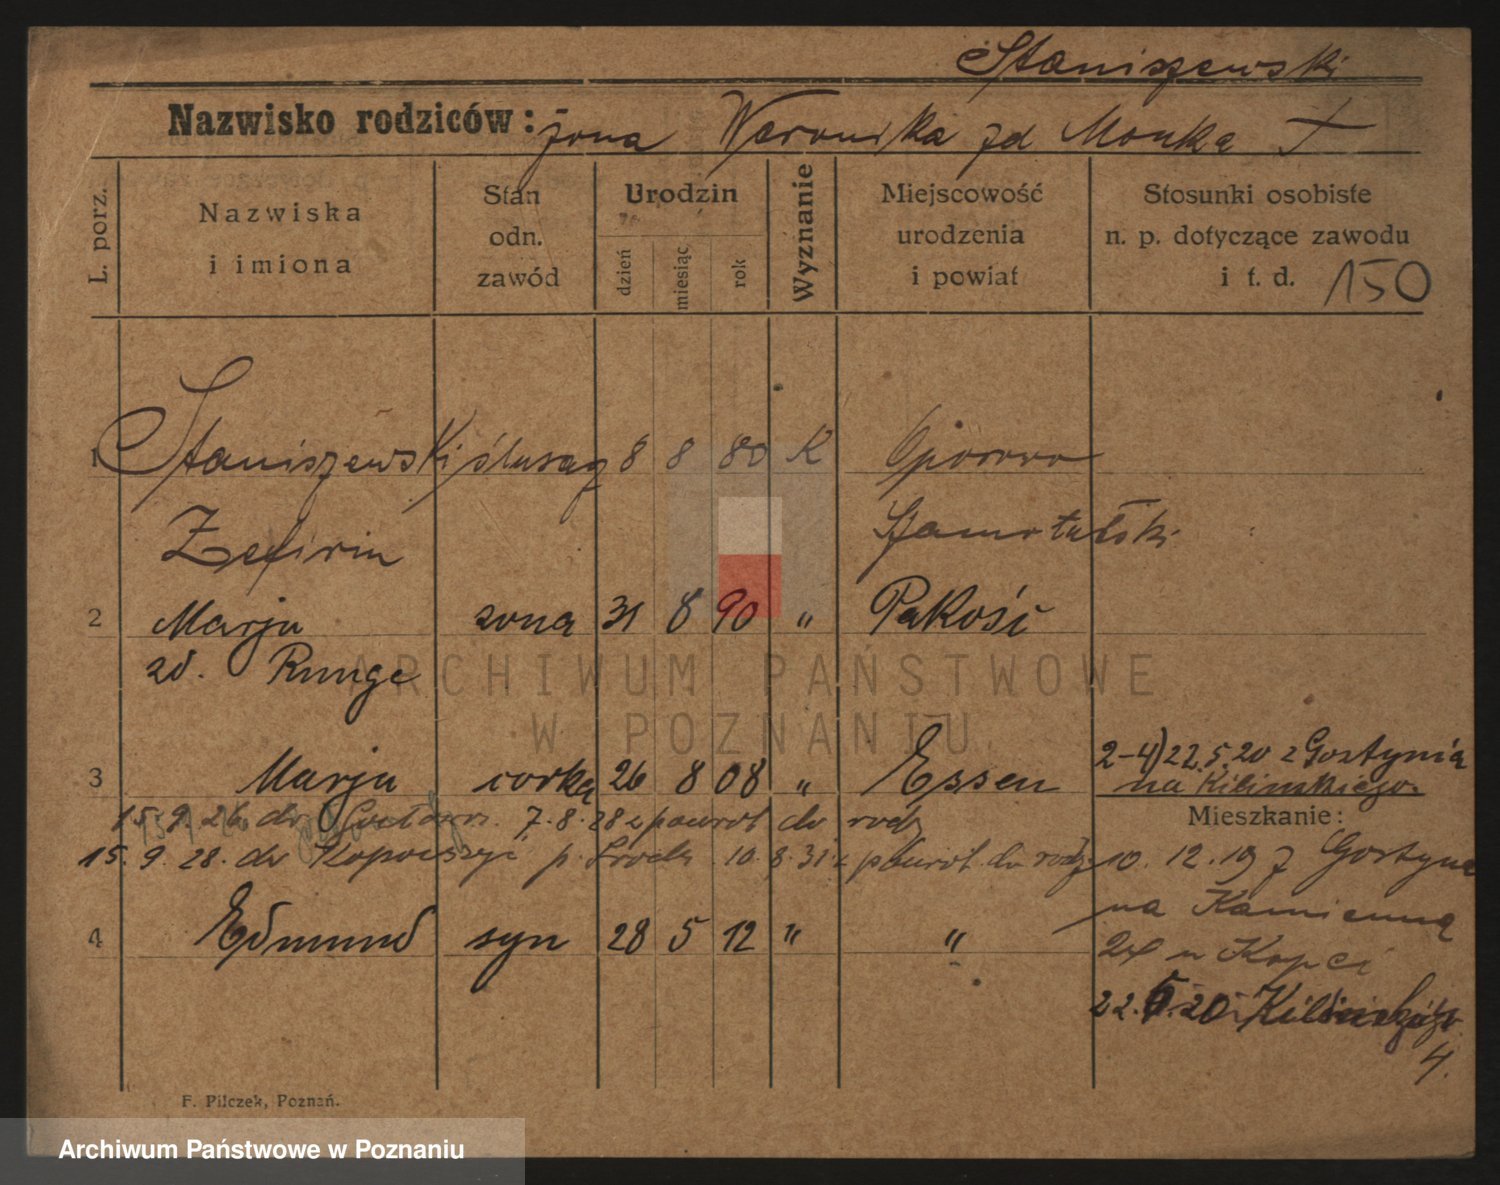 Staniszewski
Nazwisko rodziców: żona Weronika zd Monka †
L. porz.
Nazwiska
i imiona
Stan
odn.
zawód
Urodzin
dzień
miesiąc
rok
Wyznanie
Miejscowość
urodzenia
i powiat
Stosunki osobiste
n. p. dotyczące zawodu
i t. d.
150
1 Staniszewski ślusarz 8 8 80 K Oporowo
Zefirin Szamotulski
2 Marja żona 31 8 90 " Pakość
zd. Runge
3 Marja córka 26 8 08 " Essen
2-4) 22.5.20 z Gostynia
na Kilińskiego
15.9.26 do 7.8.28 z powrot do rodz
Mieszkanie:
15.9.28. do p. 10.8.31 z powrot do rodz
10.12.19 z Gostynia
na Kamienną
4 Edmund syn 28 5 12 " "
24 u Kopci
22.5.20 Kilińskiego
4.
F. Pilczek, Poznań.
ARCHIWUM PAŃSTWOWE
W POZNANIU
Archiwum Państwowe w Poznaniu